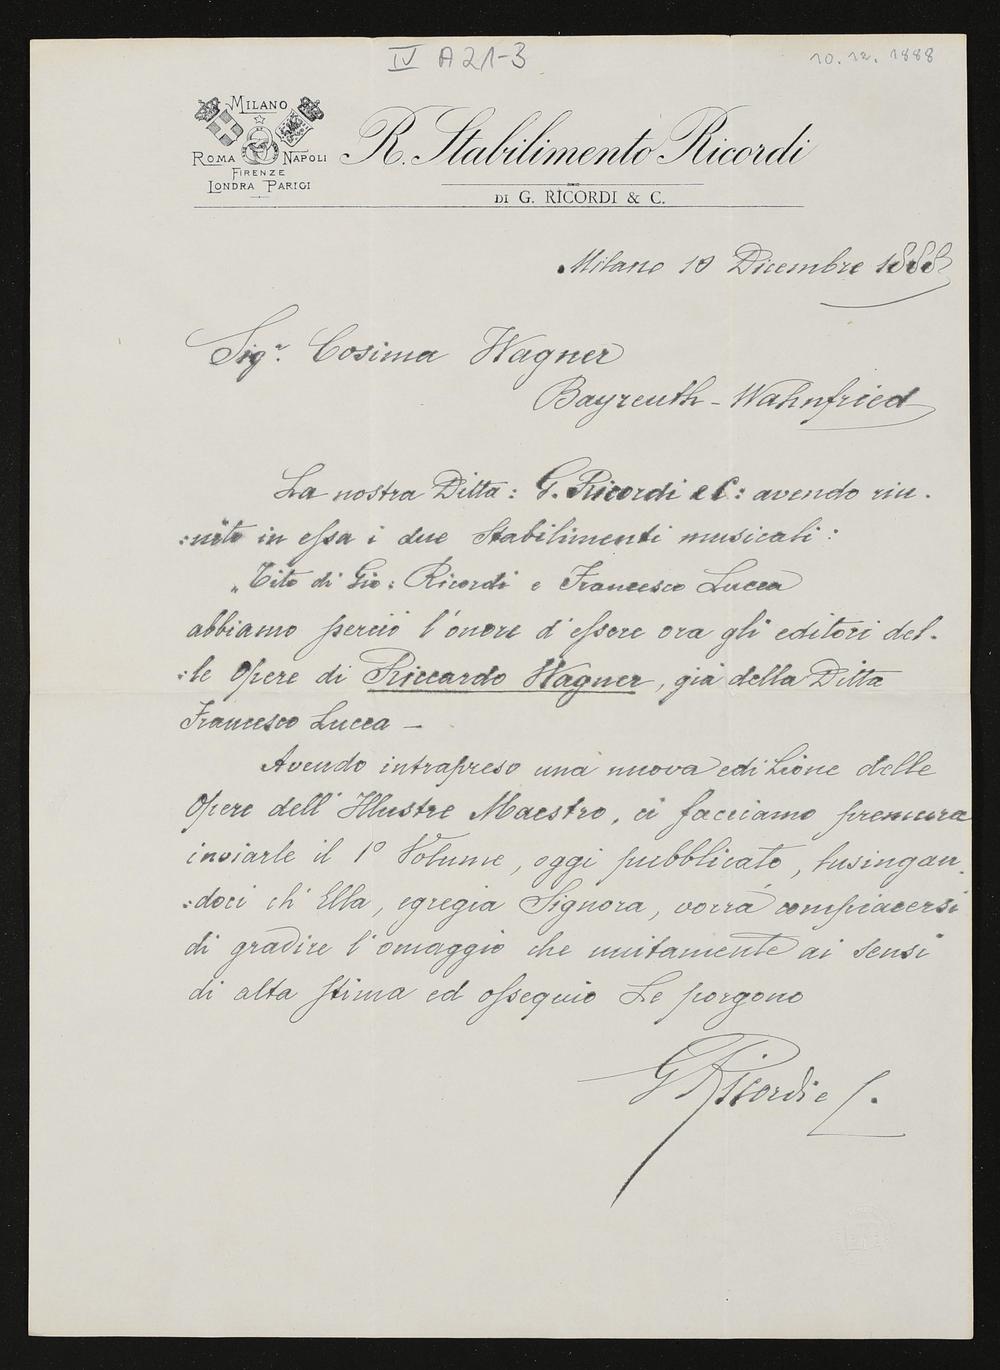 IV A 21-3
10.12.1888
MILANO
ROMA NAPOLI
FIRENZE
LONDRA PARIGI
R. Stabilimento Ricordi
DI G. RICORDI & C.
Milano 10 Dicembre 1888
Sigʳᵃ. Cosima Wagner
Bayreuth - Wahnfried
La nostra Ditta: G. Ricordi e C: avendo riu-
:nito in essa i due Stabilimenti musicali:
„Tito di Gio: Ricordi e Francesco Lucca
abbiamo perciò l'onore d'essere ora gli editori del-
:le Opere di Riccardo Wagner, già della Ditta
Francesco Lucca —
Avendo intrapreso una nuova edizione delle
Opere dell'Illustre Maestro, ci facciamo premura
inviarle il 1º Volume, oggi pubblicato, lusingan-
:doci ch'Ella, egregia Signora, vorrà compiacersi
di gradire l'omaggio che unitamente ai sensi
di alta stima ed ossequio Le porgono
G Ricordi e C.